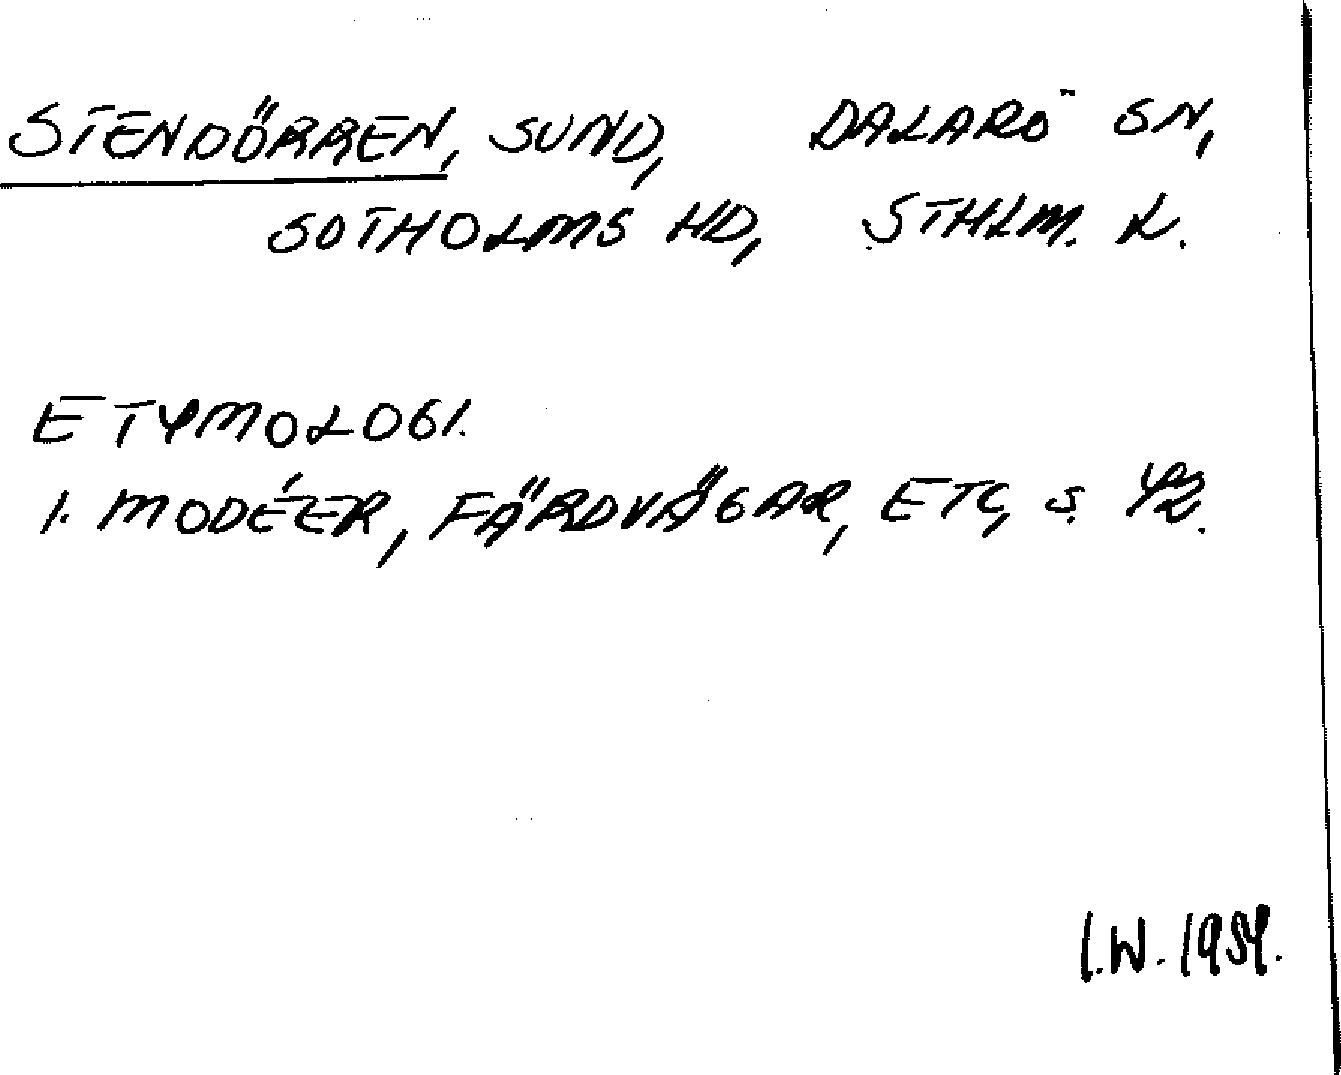 STENDÖRREN, SUND, DALARÖ SN,
SOTHOLMS HD, STHLM. L.
ETYMOLOGI.
1. MODÉER, FÄRDVÄGAR, ETC, S. 42.
I.W. 1959.